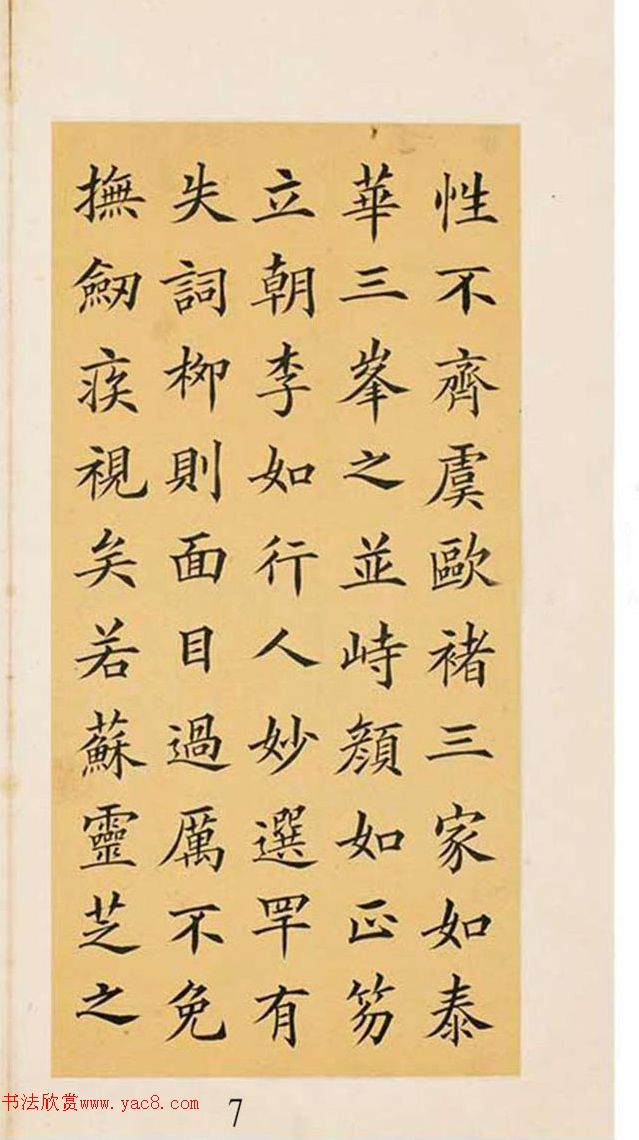 性不齊虞歐褚三家如泰
華三峯之並峙顏如正笏
立朝李如行人妙選罕有
失詞柳則面目過厲不免
撫劒疾視矣若蘇靈芝之
书法欣赏www.yac8.com
7